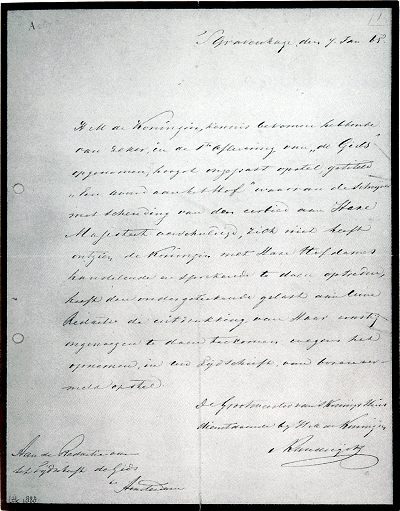 A
1
's Gravenhage den 7 Jan 18
H M de Koningin, kennis bekomen hebbende
van zeker, in de 1e aflevering van „de Gids”
opgenomen, hoogst ongepast opstel, getiteld
„Een avond aan het Hof” waarvan de Schrijver
met schending van den eerbied aan Hare
Majesteit verschuldigd, zich niet heeft
ontzien, de Koningin met Hare Hofdames
handelende en sprekende te doen optreden,
heeft den ondergeteekende gelast aan Uwe
Redactie de uitdrukking van Haar ernstig
ongenoegen te doen toekomen wegens het
opnemen, in uw Tijdschrift, van bovenver-
meld opstel.
De Grootmeester van 's Konings Huis
dienstdoende bij H M de Koningin
Aan de Redactie van
het Tijdschrift de Gids
te
Amsterdam